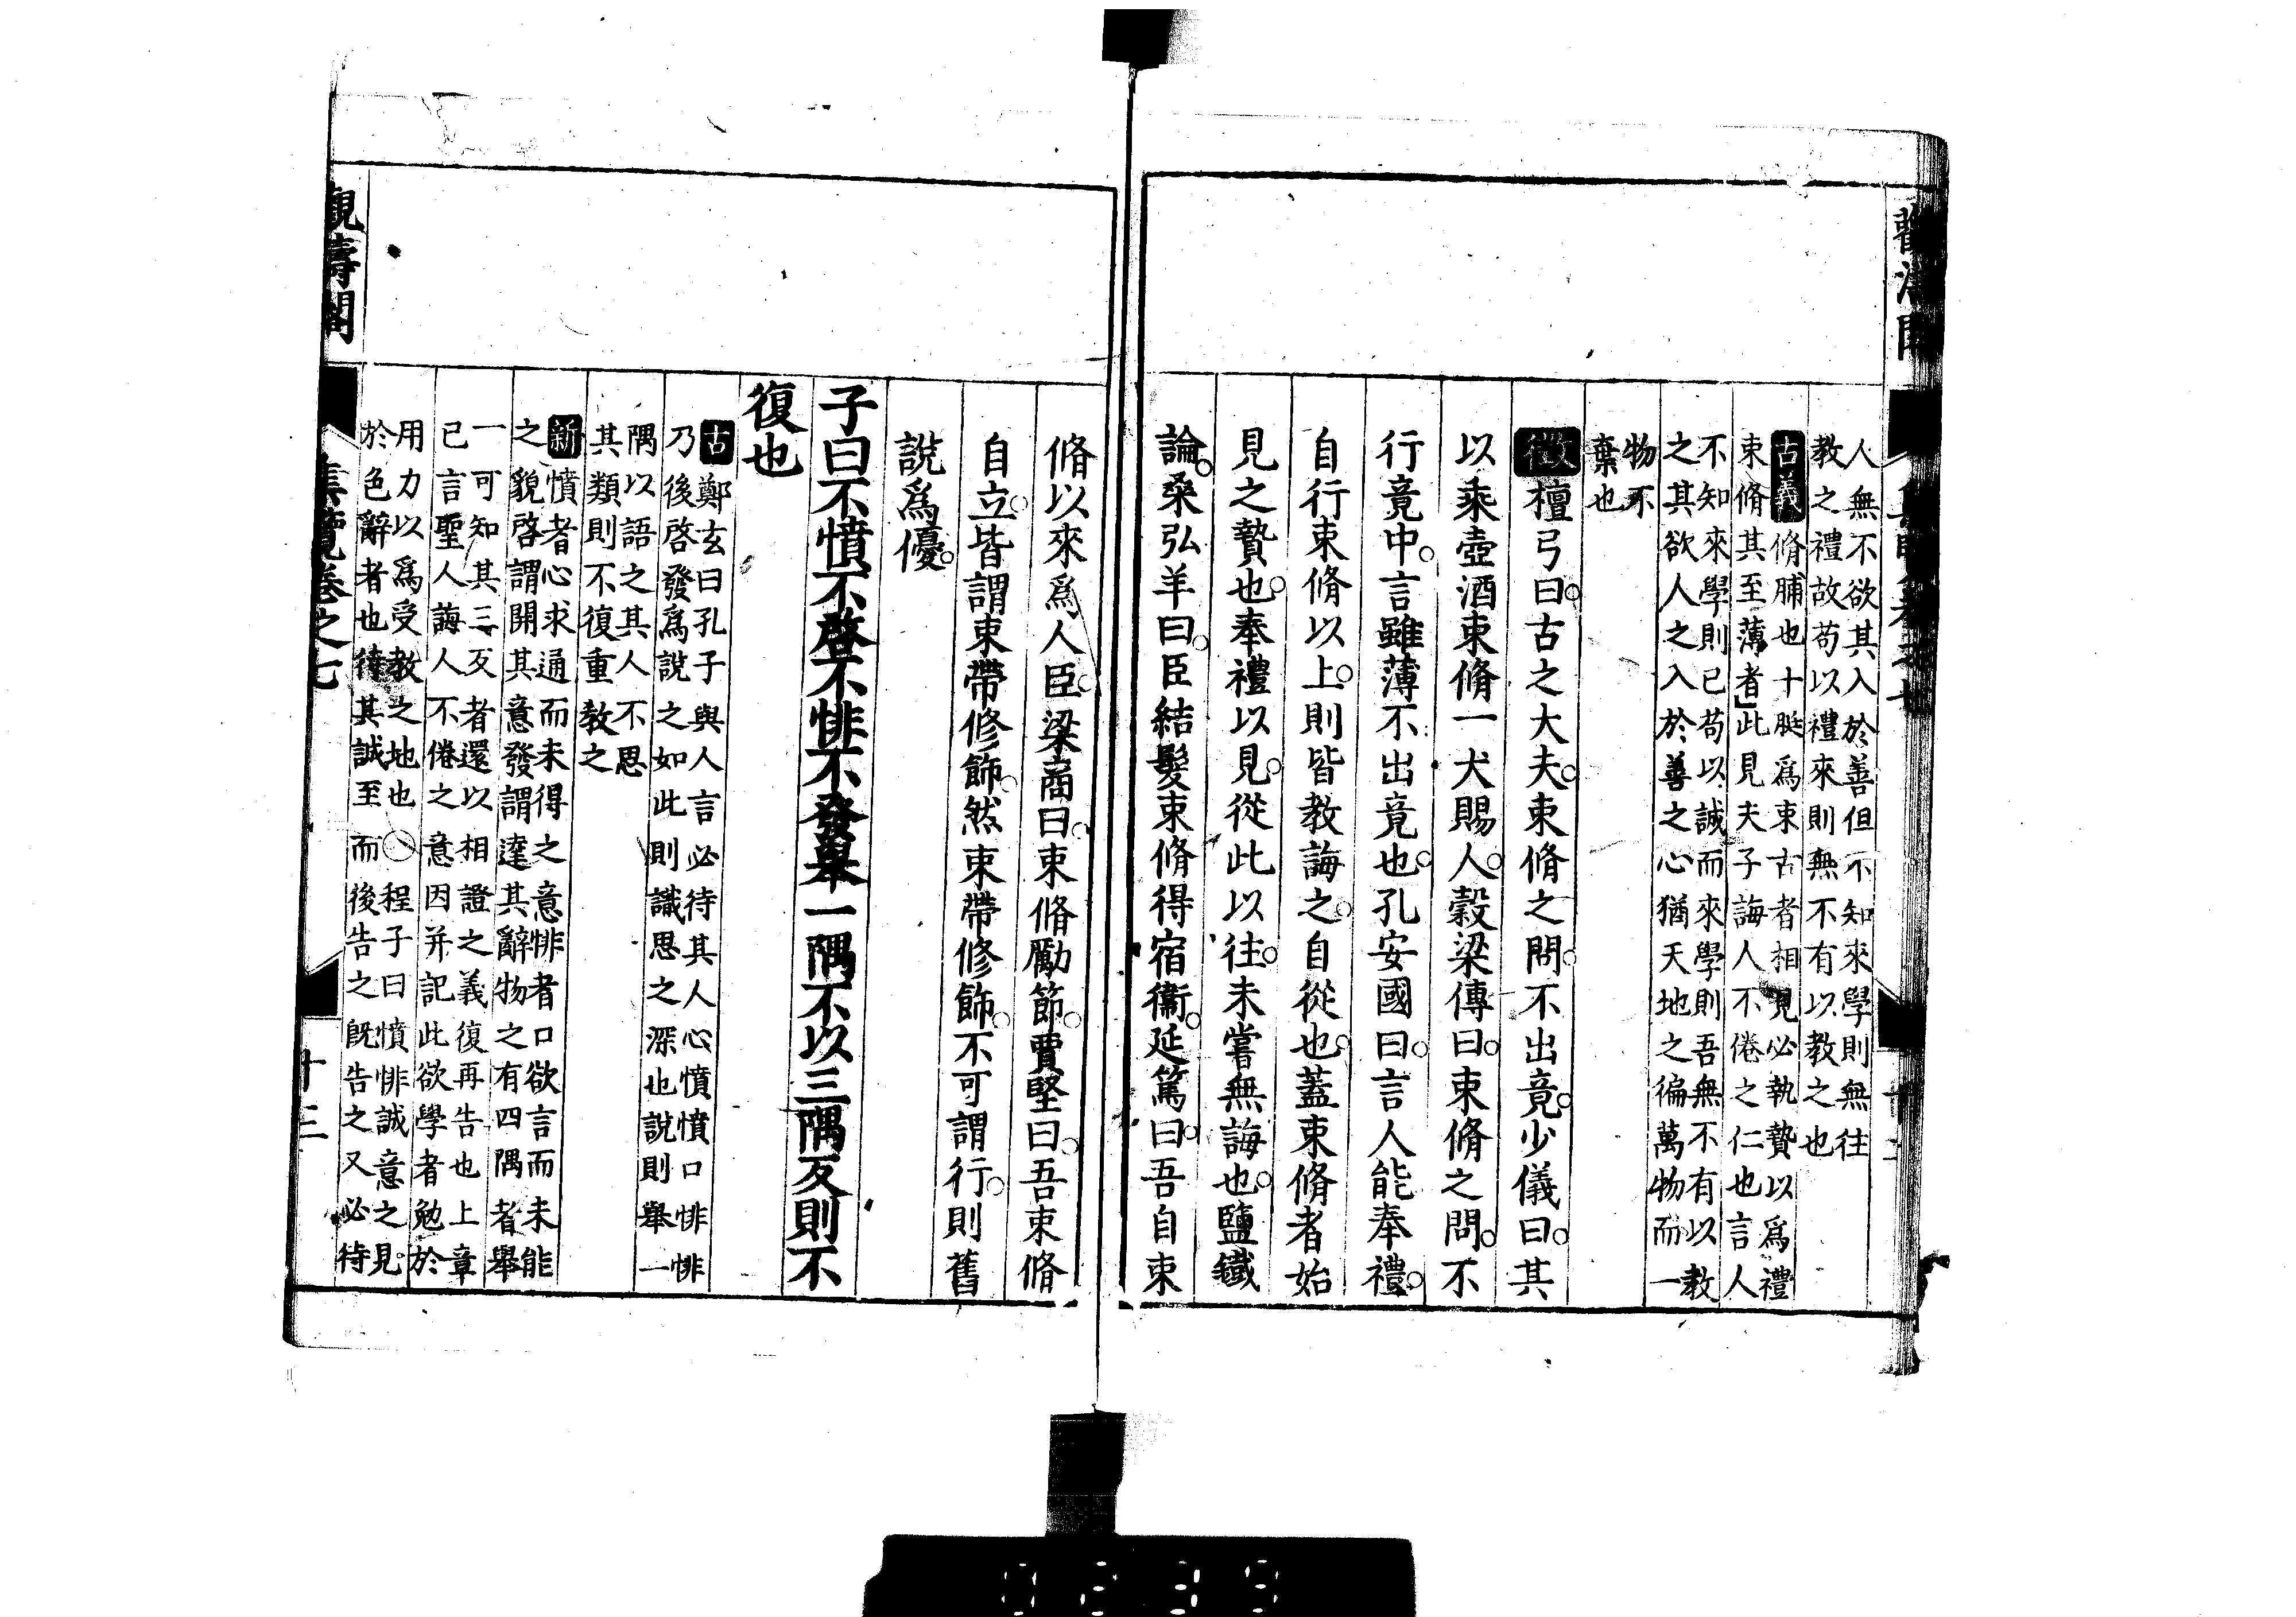 人無不欲其入於善但不知來學則無往
教之禮故苟以禮來則無不有以教之也
古義脩脯也十脡爲束古者相見必執贄以爲禮
束脩其至薄者此見夫子誨人不倦之仁也言人
不知來學則已苟以誠而來學則吾無不有以教
之其欲人之入於善之心猶天地之徧萬物而一
物不
棄也
徵檀弓曰古之大夫束脩之問不出竟少儀曰其
以乘壺酒束脩一犬賜人穀梁傳曰束脩之問不
行竟中言雖薄不出竟也孔安國曰言人能奉禮
自行束脩以上則皆教誨之自從也蓋束脩者始
見之贄也奉禮以見從此以往未嘗無誨也鹽鐵
論桑弘羊曰臣結髮束脩得宿衞延篤曰吾自束
脩以來爲人臣梁商曰束脩勵節賈堅曰吾束脩
自立皆謂束帶修飾然束帶修飾不可謂行則舊
說爲優
子曰不憤不啓不悱不發舉一隅不以三隅反則不
復也
古鄭玄曰孔子與人言必待其人心憤憤口悱悱
乃後啓發爲說之如此則識思之深也說則舉一
隅以語之其人不思
其類則不復重教之
新憤者心求通而未得之意悱者口欲言而未能
之貌啓謂開其意發謂達其辭物之有四隅者舉
一可知其三反者還以相證之義復再告也上章
已言聖人誨人不倦之意因并記此欲學者勉於
用力以爲受教之地也〇程子曰憤悱誠意之見
於色辭者也待其誠至而後告之旣告之又必待
集覽卷之七
十三
觀濤閣